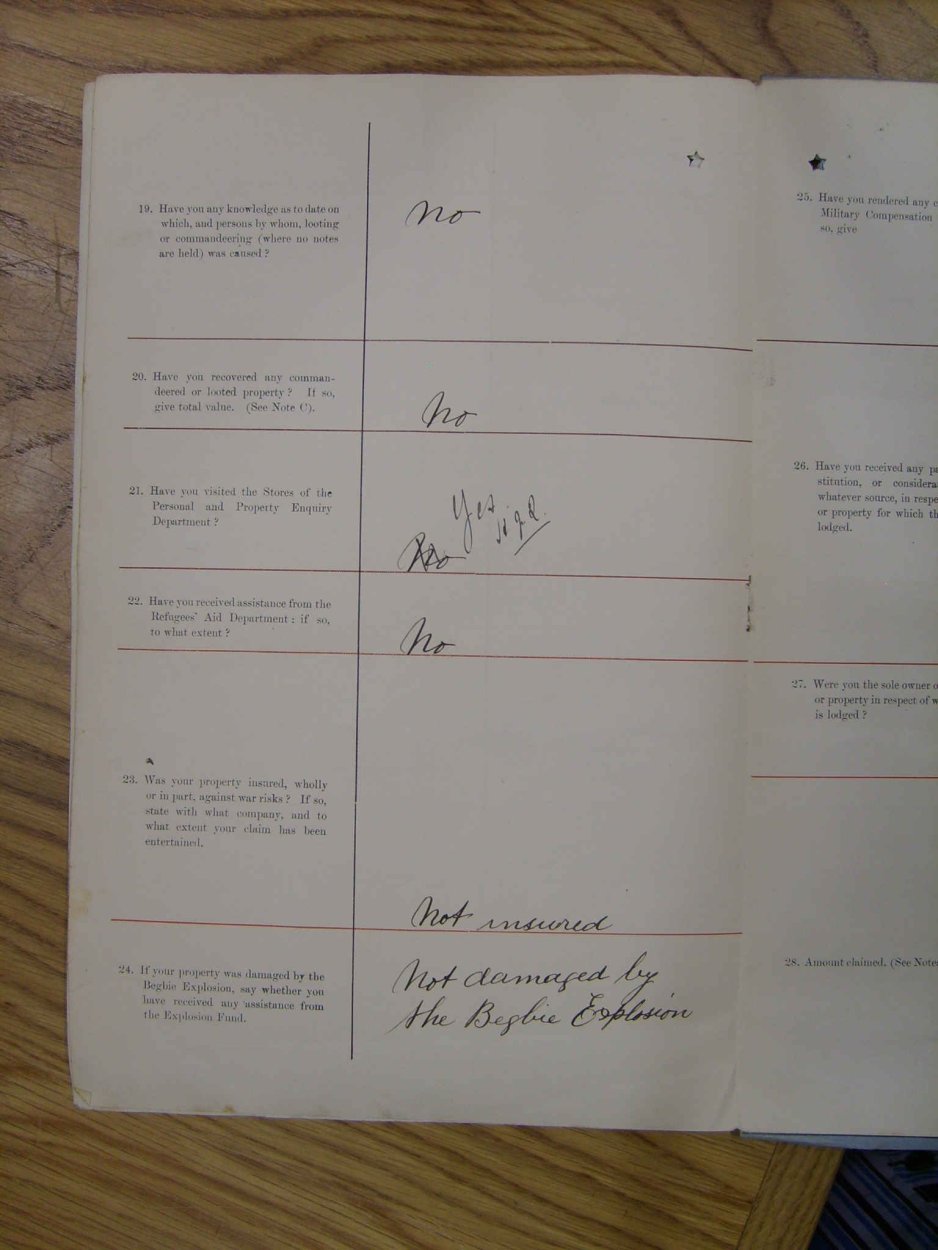 19. Have you any knowledge as to date on
which, and persons by whom, looting
or commandeering (where no notes
are held) was caused ?
No
20. Have you recovered any comman-
deered or looted property ? If so,
give total value. (See Note C).
No
21. Have you visited the Stores of the
Personal and Property Enquiry
Department ?
Yes
No
22. Have you received assistance from the
Refugees' Aid Department : if so,
to what extent ?
No
23. Was your property insured, wholly
or in part, against war risks ? If so,
state with what company, and to
what extent your claim has been
entertained.
Not insured
24. If your property was damaged by the
Begbie Explosion, say whether you
have received any assistance from
the Explosion Fund.
Not damaged by
the Begbie Explosion
25. Have you rendered any
Military Compensation
so, give
26. Have you received any
stitution, or
whatever source, in
or property for which
lodged.
27. Were you the sole owner
or property in respect of
is lodged ?
28. Amount claimed. (See